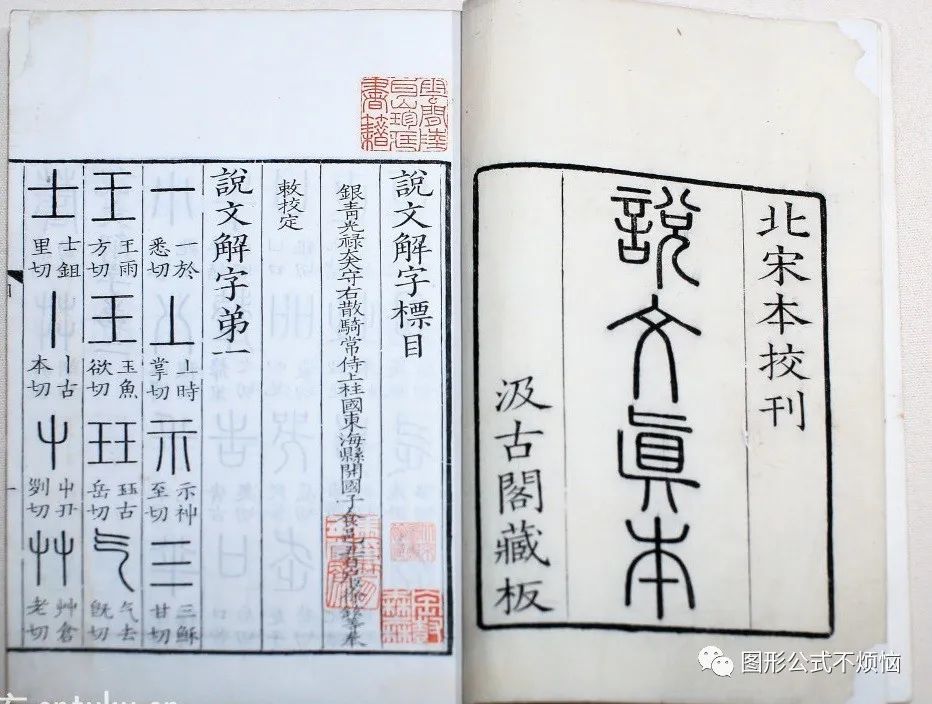 北宋本挍刊
說文眞本
汲古閣藏板
說文解字標目
銀青光祿大夫守右散騎常侍上柱國東海縣開國子食邑五百戶臣徐鉉等奉
敕挍定
說文解字弟一
一 一於悉切 丄 丄時掌切 示 示神至切 三 三穌甘切
王 王雨方切 王 玉魚欲切 玨 玨古岳切 气 气去旣切
士 士鉏里切 丨 丨古本切 屮 屮丑列切 艸 艸倉老切
图形公式不烦恼